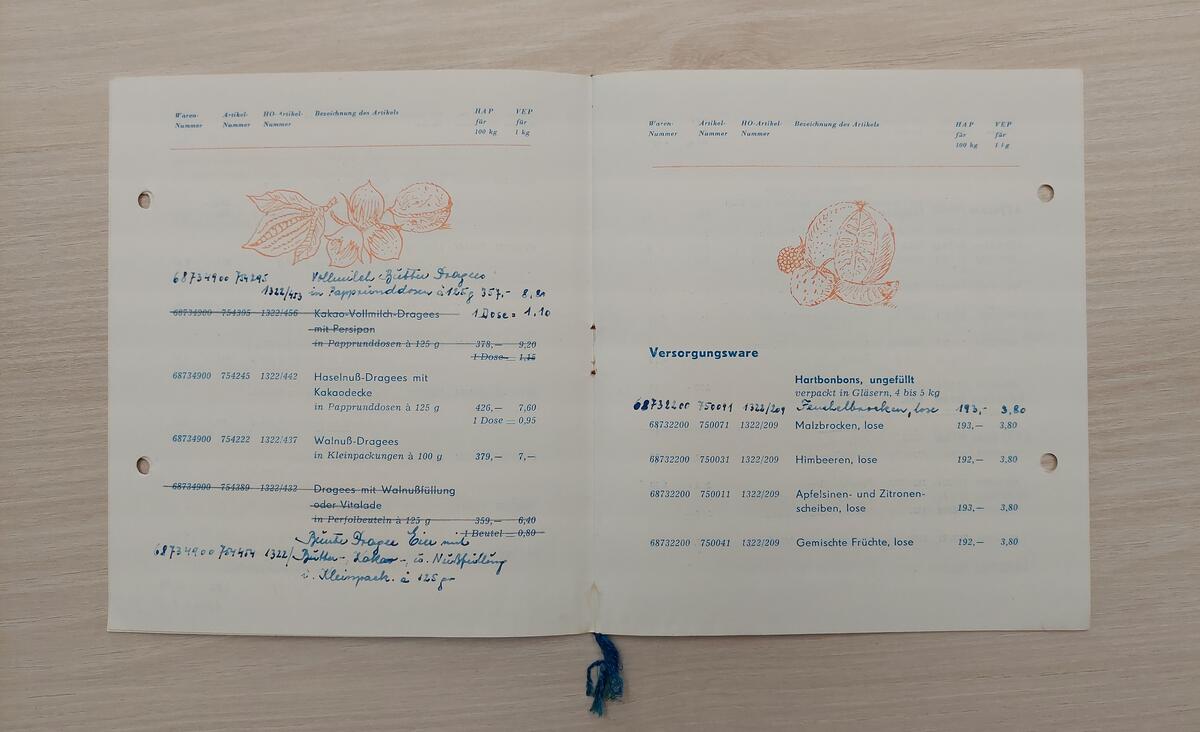 Waren- Artikel- HO-Artikel- Bezeichnung des Artikels HAP VEP
Nummer Nummer Nummer für für
100 kg 1 kg
68734900 754295 Vollmilch-Butter Dragees
1322/453 in Papprunddosen à 125 g 357,- 8,80
68734900 754395 1322/456 Kakao-Vollmilch-Dragees 1 Dose = 1,10
mit Persipan
in Papprunddosen à 125 g 378,— 9,20
1 Dose = 1,15
68734900 754245 1322/442 Haselnuß-Dragees mit
Kakaodecke
in Papprunddosen à 125 g 426,— 7,60
1 Dose = 0,95
68734900 754222 1322/437 Walnuß-Dragees
in Kleinpackungen à 100 g 379,— 7,—
68734900 754389 1322/432 Dragees mit Walnußfüllung
oder Vitalade
in Perfolbeuteln à 125 g 359,— 6,40
1 Beutel = 0,80
Bunte Dragee Eier mit
68734900 754454 1322/ Butter-, Kakao-, u. Nußfüllung
i. Kleinpack. à 125 gr
Waren- Artikel- HO-Artikel- Bezeichnung des Artikels HAP VEP
Nummer Nummer Nummer für für
100 kg 1 kg
Versorgungsware
Hartbonbons, ungefüllt
verpackt in Gläsern, 4 bis 5 kg
68732200 750091 1322/209 Fenchelbrocken, lose 193,- 3,80
68732200 750071 1322/209 Malzbrocken, lose 193,— 3,80
68732200 750031 1322/209 Himbeeren, lose 192,— 3,80
68732200 750011 1322/209 Apfelsinen- und Zitronen-
scheiben, lose 193,— 3,80
68732200 750041 1322/209 Gemischte Früchte, lose 192,— 3,80